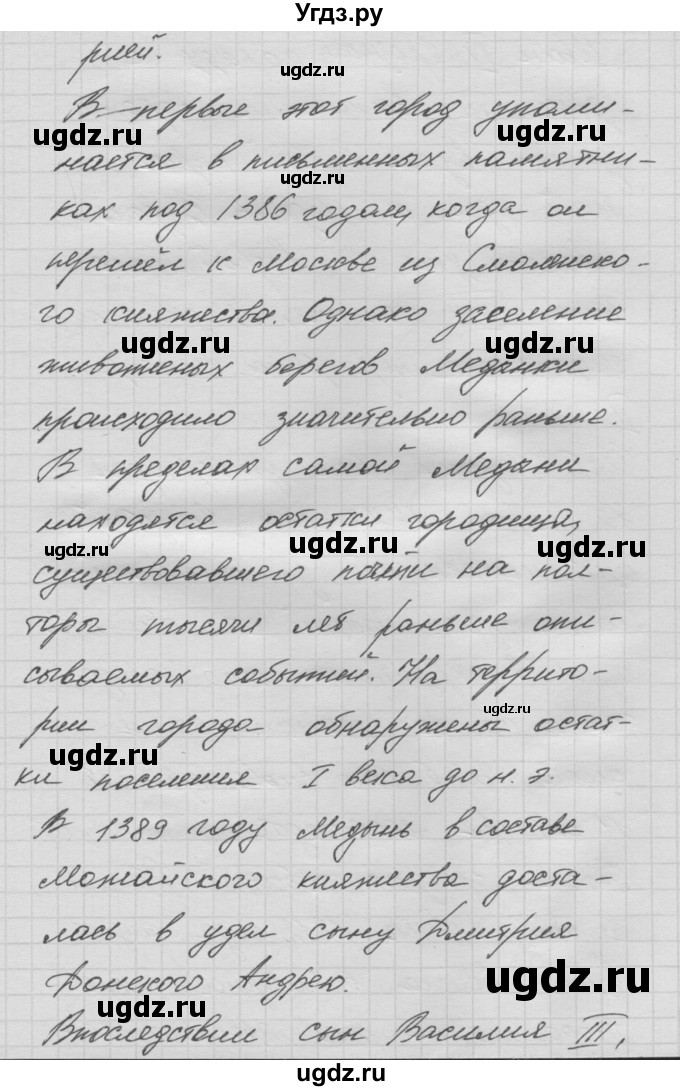 Угдз.ру
рией.
ugdz.ru
В-первые этот город упоми-
ugdz.ru ugdz.ru
нается в письменных памятни-
ugdz.ru
ках под 1386 годом, когда он
перешёл к Москве из Смоленско-
го княжества. Однако заселение
ugdz.ru ugdz.ru
живописных берегов Медынки
происходило значительно раньше.
В пределах самой Медыни
находятся остатки городища,
ugdz.ru ugdz.ru ugdz.ru
существовавшего почти на пол-
торы тысячи лет раньше опи-
сываемых событий. На террито-
ugdz.ru
рии города обнаружены остат-
ugdz.ru
ки поселения I века до н. э.
В 1389 году Медынь в составе
Можайского княжества доста-
лась в удел сыну Дмитрия
Донского Андрею.
ugdz.ru ugdz.ru
Впоследствии сын Василия III,
ugdz.ru